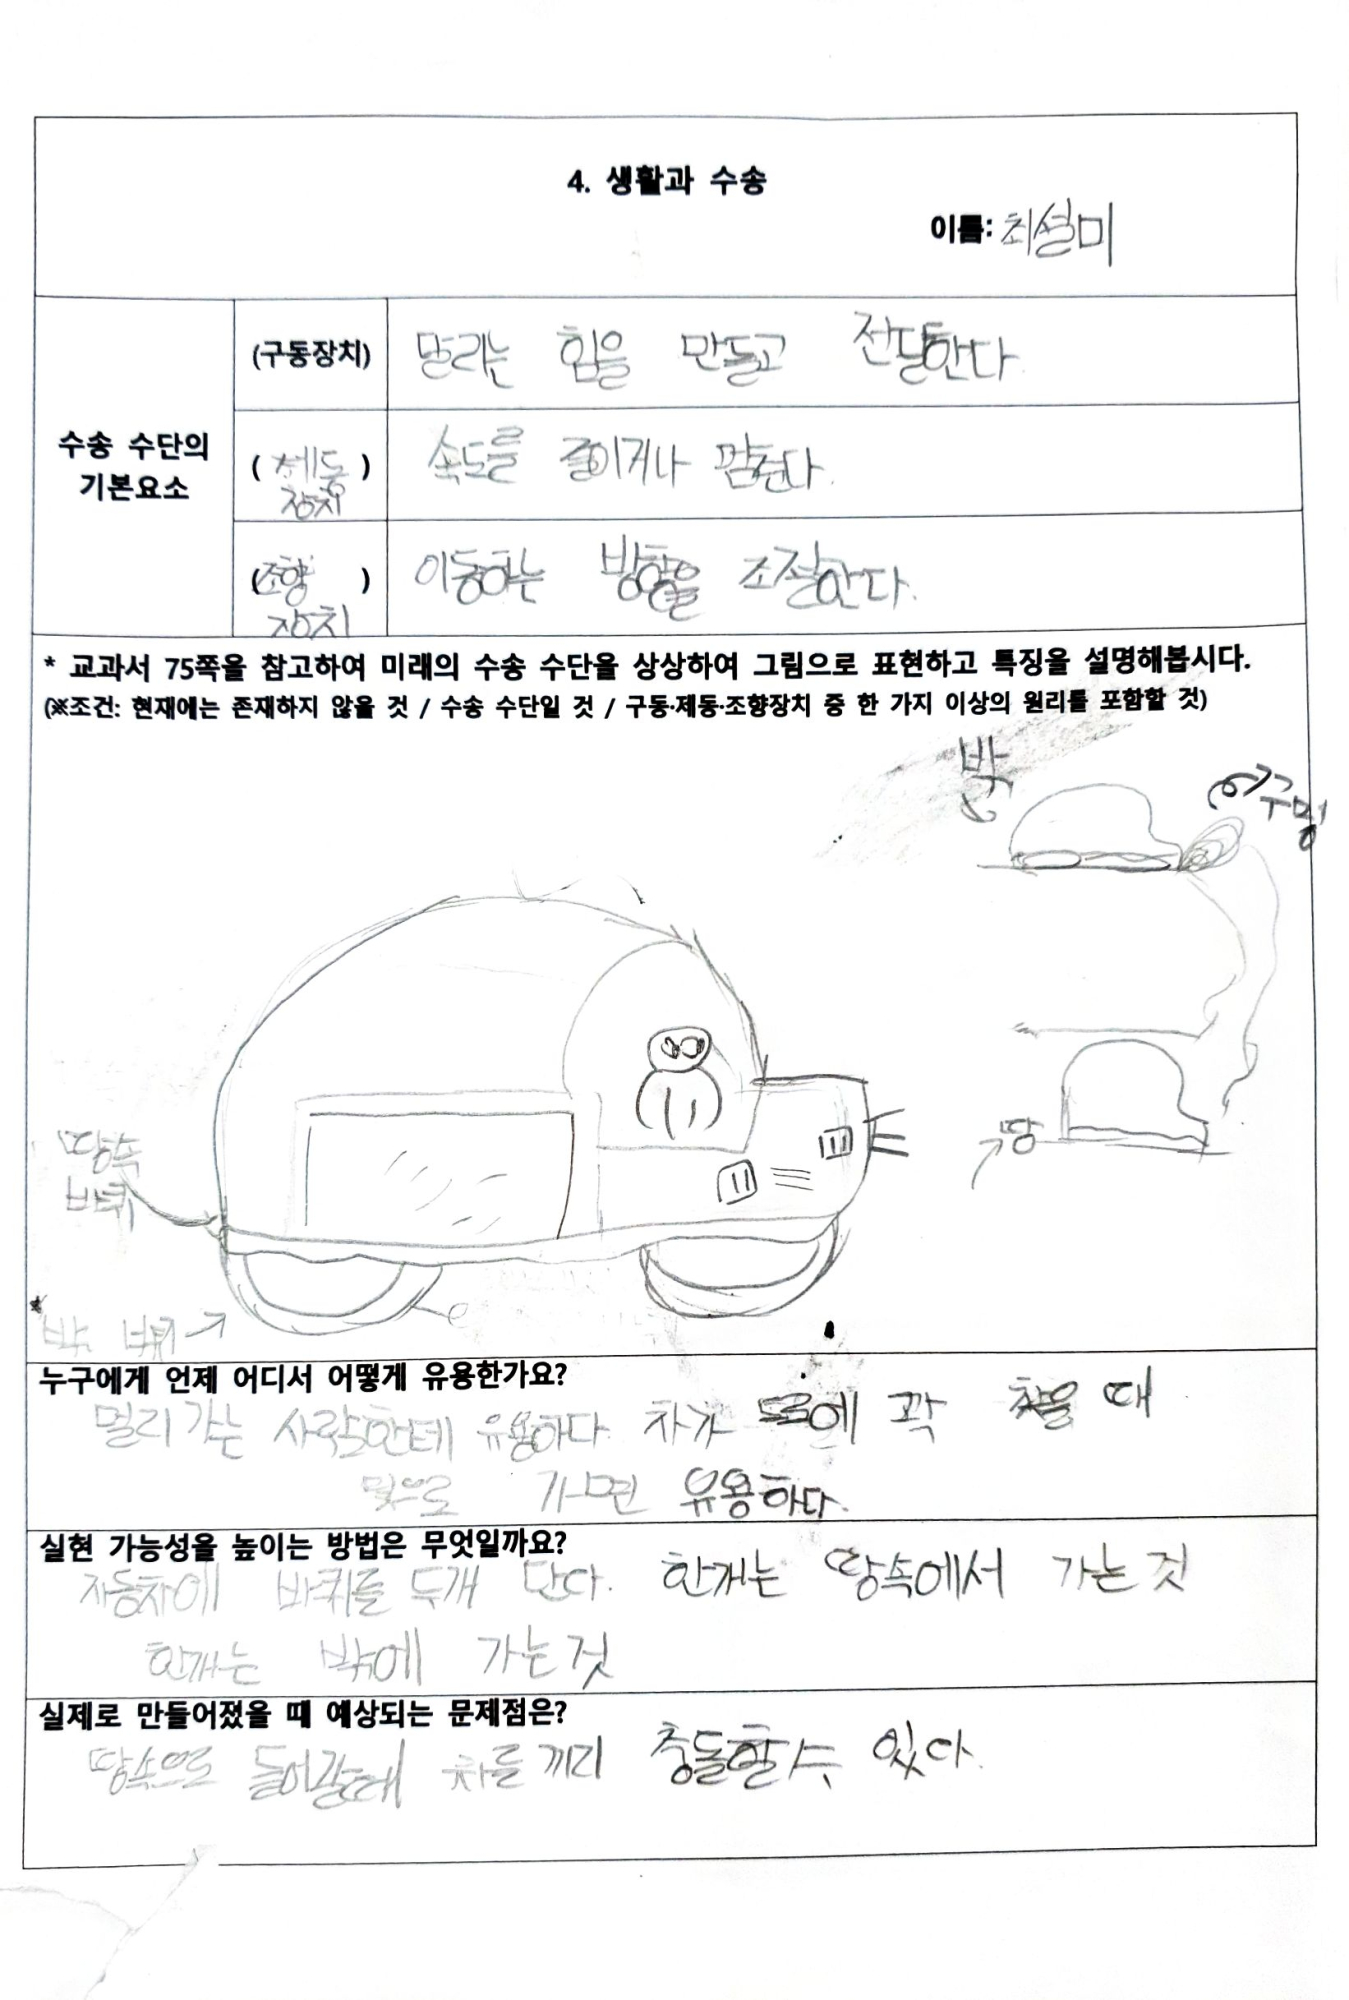 4. 생활과 수송
이름: 최설미
수송 수단의
기본요소
(구동장치) 달리는 힘을 만들고 전달한다.
(제동
장치) 속도를 줄이거나 멈춘다.
(조향
장치) 이동하는 방향을 조절한다.
* 교과서 75쪽을 참고하여 미래의 수송 수단을 상상하여 그림으로 표현하고 특징을 설명해봅시다.
(※조건: 현재에는 존재하지 않을 것 / 수송 수단일 것 / 구동·제동·조향장치 중 한 가지 이상의 원리를 포함할 것)
밖
구멍
땅
땅속
바퀴
밖 바퀴
누구에게 언제 어디서 어떻게 유용한가요?
멀리 가는 사람한테 유용하다. 차가 도로에 꽉 찼을 때
밑으로 가면 유용하다.
실현 가능성을 높이는 방법은 무엇일까요?
자동차에 바퀴를 두개 단다. 한개는 땅속에서 가는 것
한개는 밖에 가는 것
실제로 만들어졌을 때 예상되는 문제점은?
땅속으로 들어갈때 차들끼리 충돌할 수 있다.